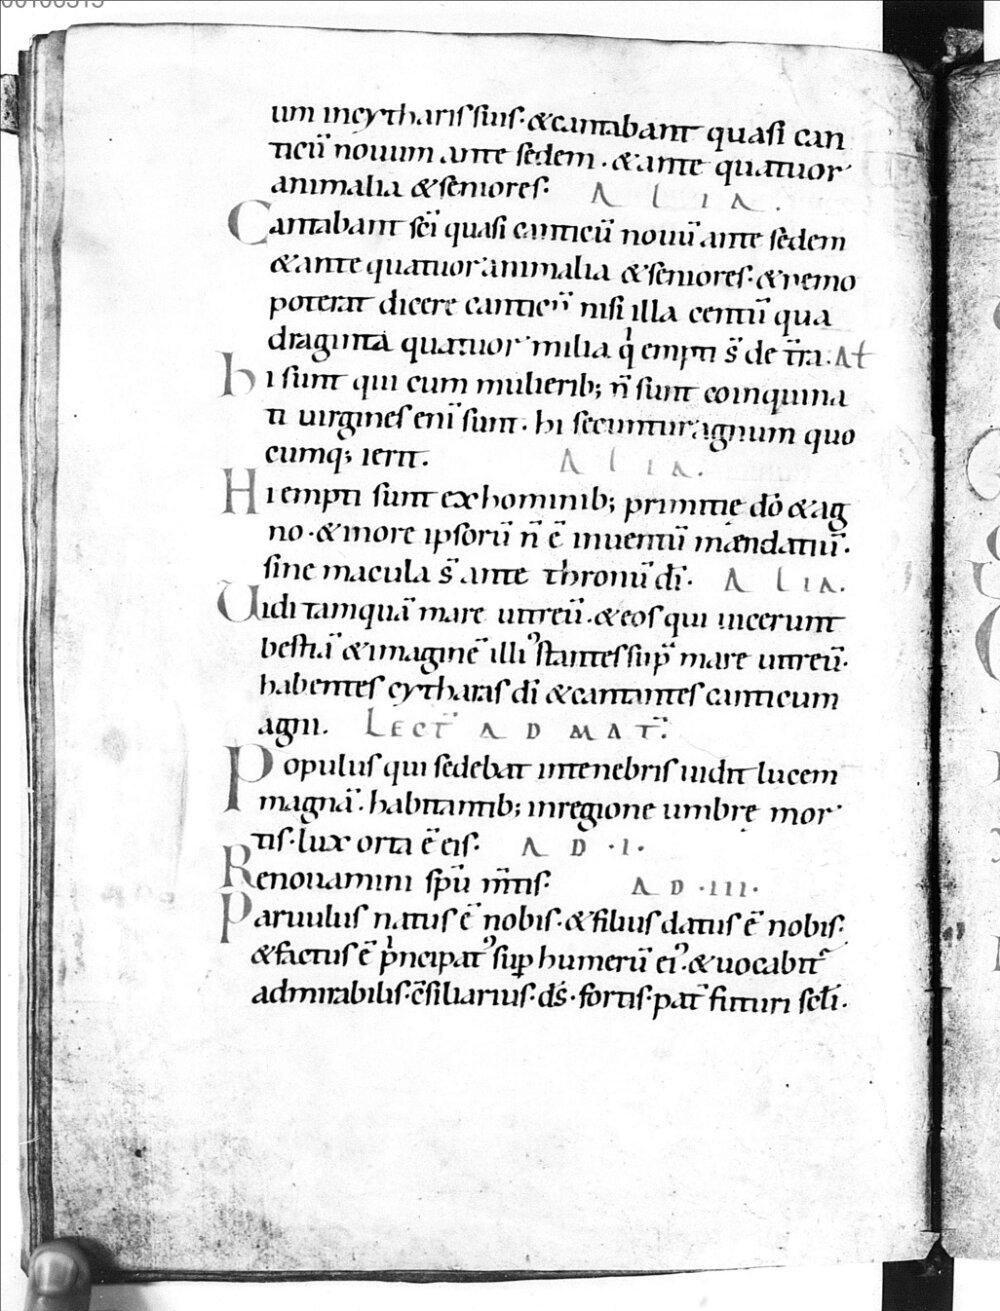 00108315
um incytharis suis· &cantabant quasi can
ticū nouum ante sedem· &ante quatuor
animalia &seniores· ALIA.
Cantabant sc̄i quasi canticū nouū ante sedem
&ante quatuor animalia &seniores· &nemo
poterat dicere canticū nisi illa centū qua
draginta quatuor milia q̇ empti s̄ de t̄ra· Al̄
hi sunt qui cum mulierib; n̄ sunt coinquina
ti uirgines eni̅ sunt· hi secuntur agnum quo
cumq; ierit. ALIA.
Hi empti sunt exhominib; primitie dō &ag
no· &inore ipsorū n̄ ē inuentū mendatiū·
sine macula s̄ ante thronū dī· ALIA.
Uidi tamquā mare uitreū· &eos qui uicerunt
bestiā &imaginē illiʼ stantes sup̄ mare uitreū·
habentes cytharas dī &cantantes canticum
agni. LECT̄ AD MAT̄.
Populus qui sedebat intenebris uidit lucem
magnā· habitantib; inregione umbre mor
tis· lux orta ē eis· AD ·I·
Renouamini sp̄u m̄tis· AD ·III·
Paruulus natus ē nobis· &filius datus ē nobis·
&factus ē pͥncipatʼ sup humerū eiʼ· &uocabitʼ
admirabilis· c̄siliarius· ds̄· fortis· pat̄ futuri sc̄li·